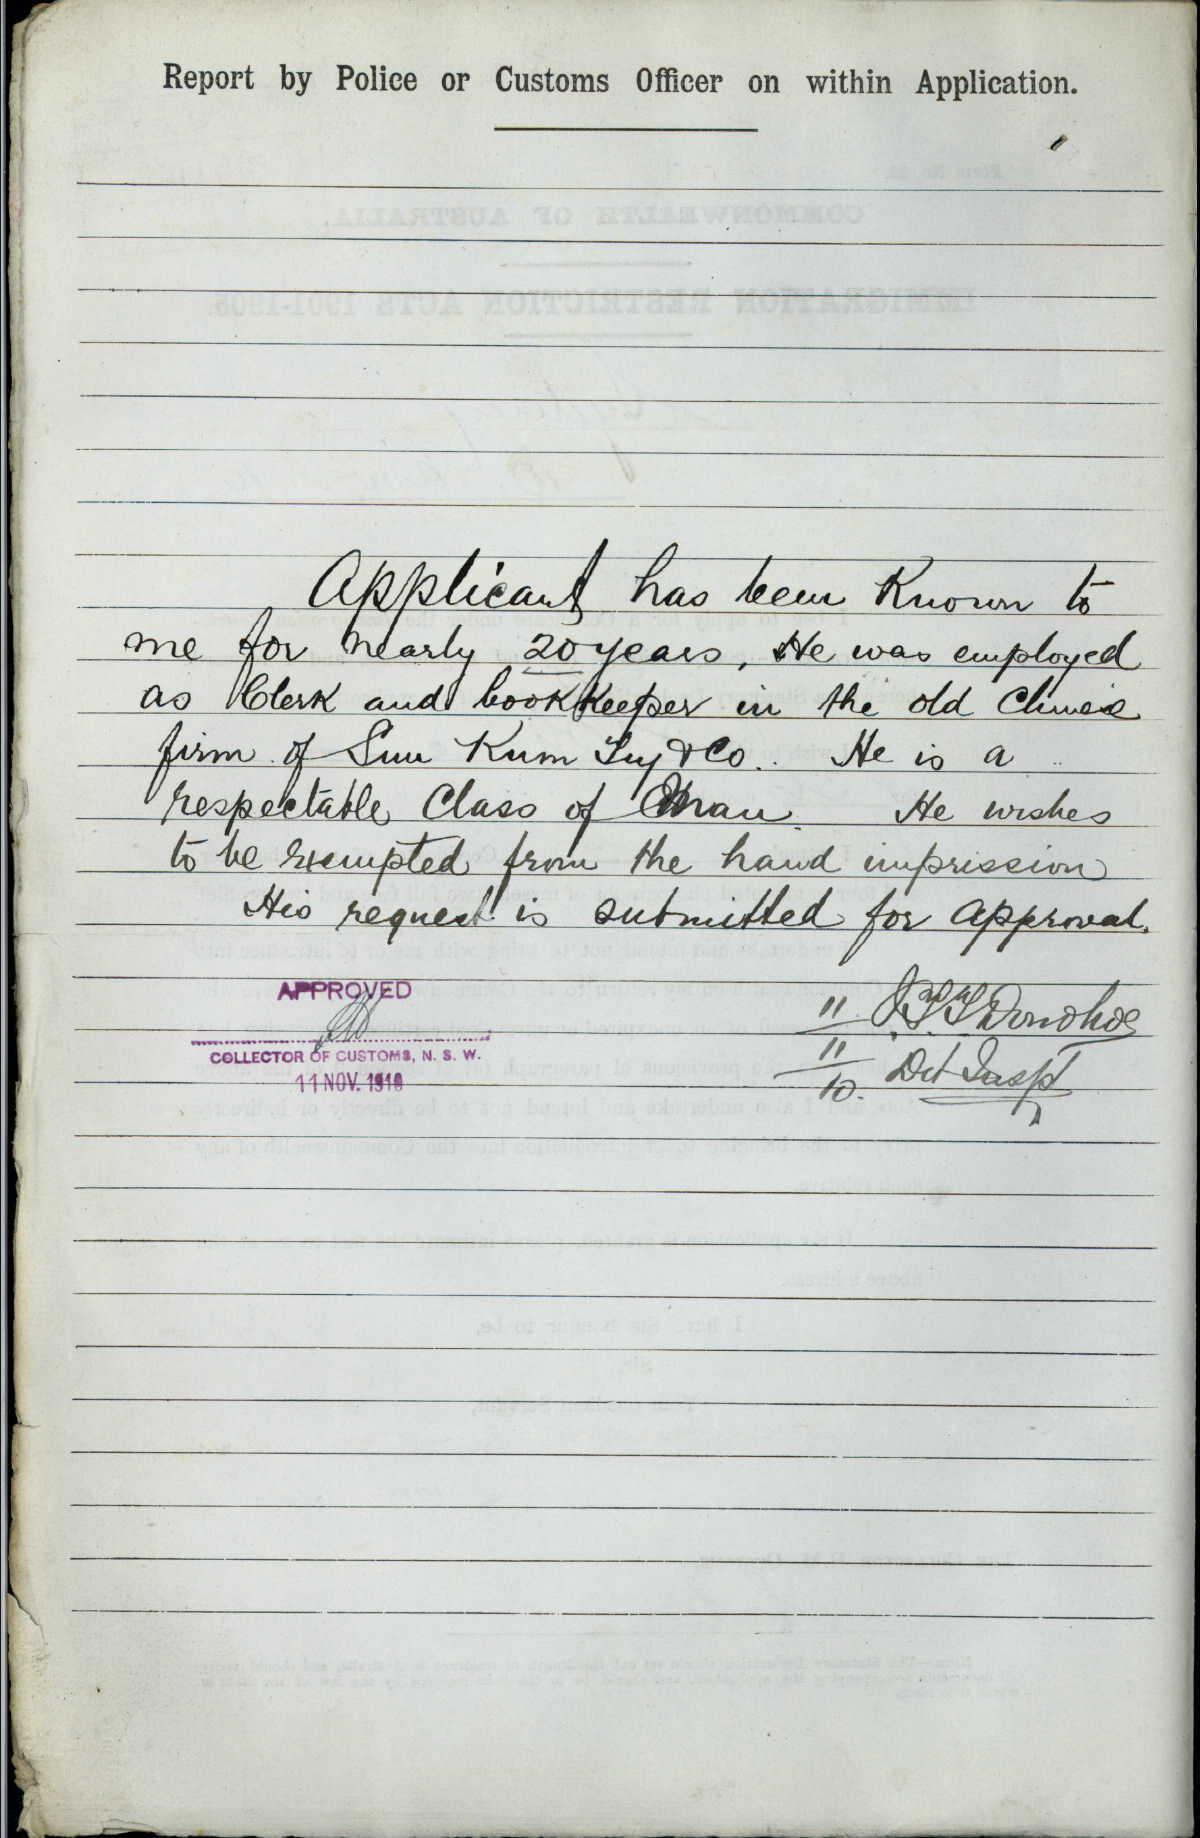 Report by Police or Customs Officer on within Application.
Applicant has been Known to
me for nearly 20 years, He was employed
as Clerk and book Keeper in the old Chinese
firm of Sun Kum Tiy & Co. He is a
respectable Class of man. He wishes
to be exempted from the hand impression
His request is submitted for approval.
APPROVED
COLLECTOR OF CUSTOMS, N. S. W.
11 NOV. 1910
11
11
10.
Donohoe
Det Inspt